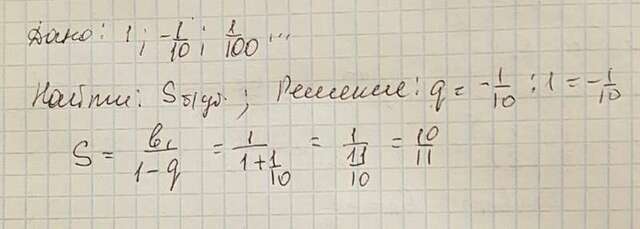 Дано: 1; -1/10; 1/100 ...
Найти: Sб/уб.; Решение: q = -1/10 : 1 = -1/10
S = b₁/(1-q) = 1/(1+1/10) = 1/(11/10) = 10/11